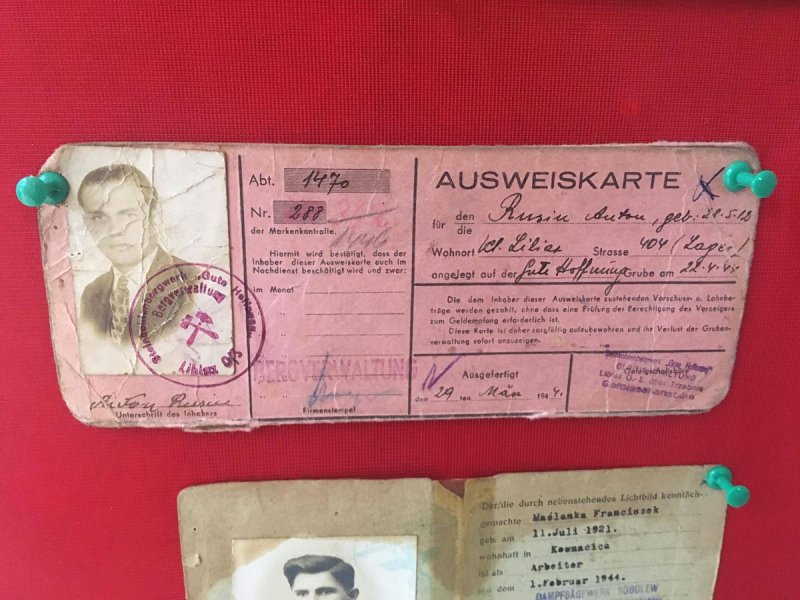 Abt. 1470
Nr. 288
der Markenkontrolle.
Hiermit wird bestätigt, dass der
Inhaber dieser Ausweiskarte auch im
Nachdienst beschäftigt wird und zwar:
im Monat
BERGVERWALTUNG
Firmenstempel
Steinkohlenbergwerk "Gute Hoffnung"
Bergverwaltung
Libiaz O/S
Anton Rusin
Unterschrift des Inhabers
AUSWEISKARTE
für den Rusin Anton, geb. 21.5.12
die
Wohnort Kl. Libiaz Strasse 404 (Lager)
angelegt auf der Gute Hoffnung Grube am 22.4.44
Die dem Inhaber dieser Ausweiskarte zustehenden Vorschuss- u. Lohnbe-
träge werden gezahlt, ohne dass eine Prüfung der Berechtigung des Vorzeigers
zum Geldempfang erforderlich ist.
Diese Karte ist daher sorgfältig aufzubewahren und ihr Verlust der Gruben-
verwaltung sofort anzuzeigen.
Ausgefertigt
den 29 ten März 1944.
Steinkohlenbergwerk "Gute Hoffnung"
BERGVERWALTUNG
Libiaz O.-S. über Trzebinia
Gefolgschaftsbüro
Der/die durch nebenstehendes Lichtbild kenntlich
gemachte Maślanka Franciszek
geb. am 11.Juli 1921.
wohnhaft in Kownacica
ist als Arbeiter
1.Februar 1944.
DAMPFSÄGEWERK SOBOLEW